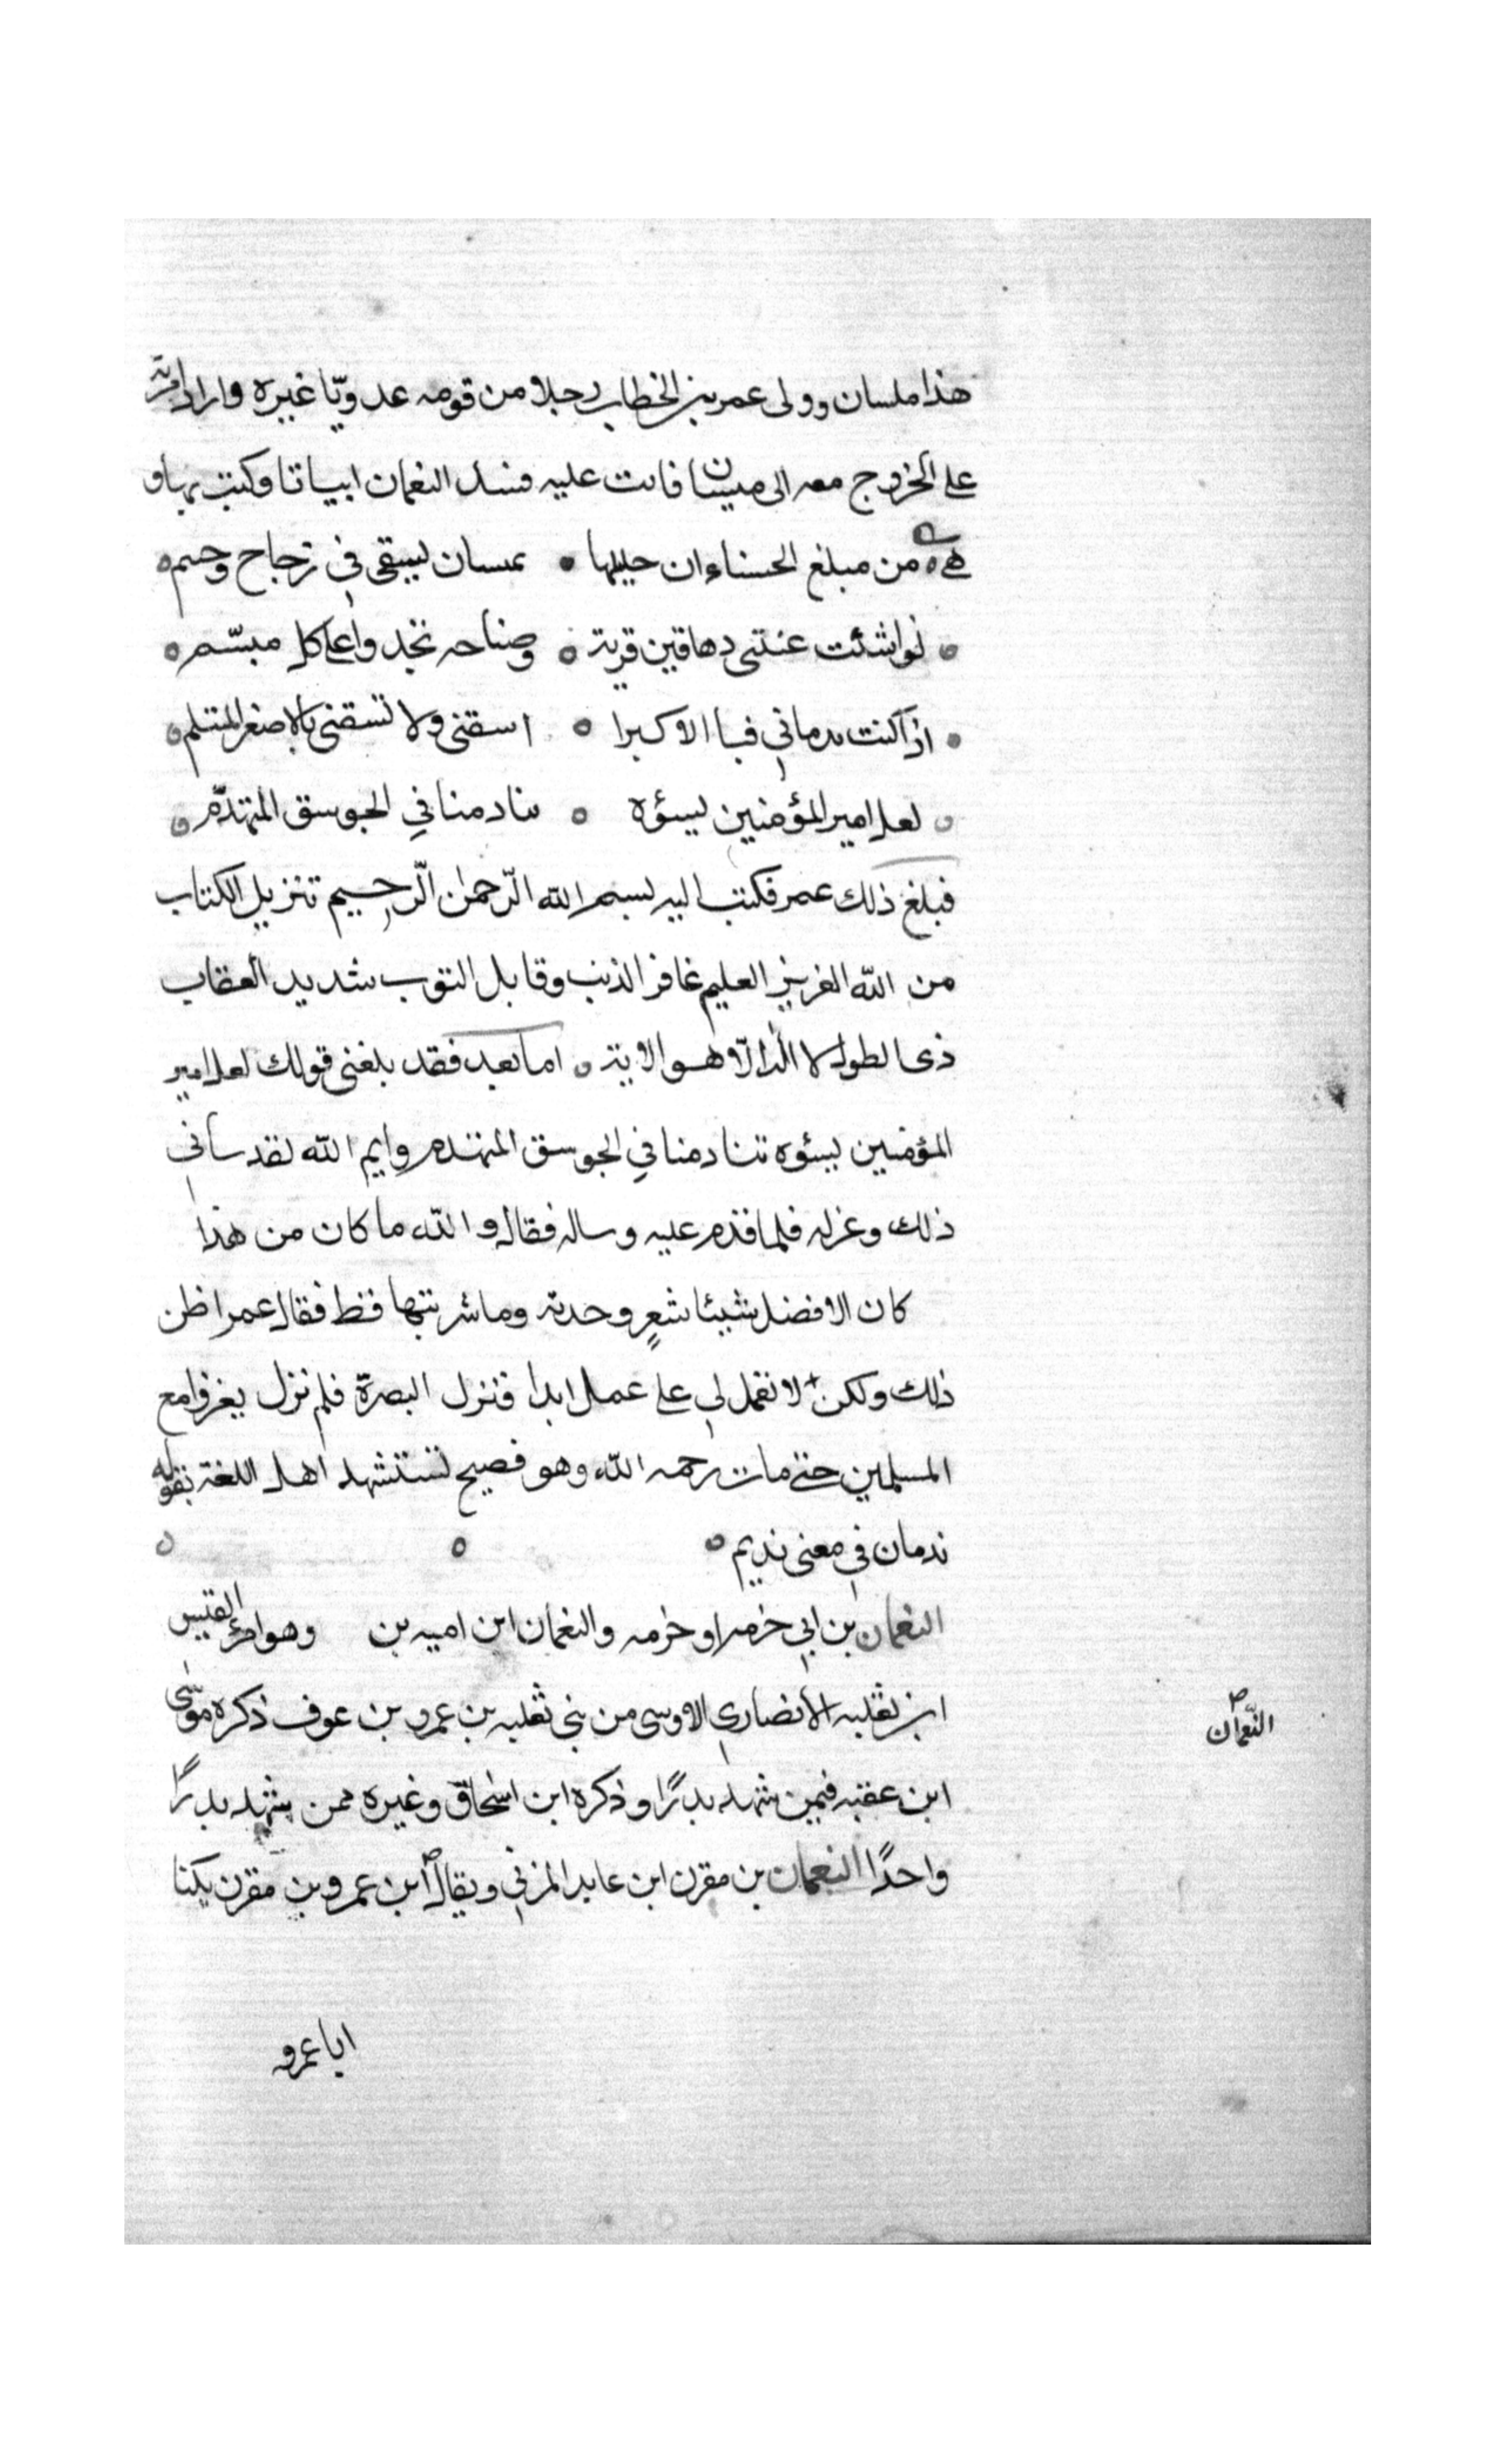 هذا ملسان وولى عمر بن الخطاب رجلا من قومه عدويّا غيره واراد امرته
على الخروج معه الى ميسان فابت عليه فنسل النعمان ابياتا وكتب بها و
هى ه من مبلغ الحسناء ان حليلها ه بمسان ليسقى في زجاج وحسم ه
ه نواشئت غنتى دهاقين قرية ه وصناحه تجد واعلى كل مبسّم ه
ه اذا كنت ندمانى فبا الاكبرا ه اسقنى ولا تسقنى بالاصغر المتثلم ه
ه لعل امير المؤمنين يسؤه ه تنادمنا في الجوسق المتهدّم ه
فبلغ ذلك عمر فكتب اليه بسم الله الرّحمن الرّحيم تنزيل الكتاب
من الله العزيز العليم غافر الذنب وقابل التوب شديد العقاب
ذى الطول لا اله الّا هو الاية ه اما بعد فقد بلغنى قولك لعل امير
المؤمنين يسؤه تنادمنا في الجوسق المتهدم وايم الله لقد سأني
ذلك وعزله فلما قدم عليه وساله فقال والله ما كان من هذا
كان الافضل شيئا شعرٍ وحدته وما شربتها قط فقال عمر اظن
ذلك ولكن لا تعمل لي على عمل ابدا فنزل البصرة فلم نزل يغزوا مع
المسلمين حتى مات رحمه الله وهو فصيح تستشهد اهل اللغة بقوله
ندمان في معنى نديم ه ه ه
النعمان بن ابي خزمه او خزمه والنعمان ابن اميه بن وهو امرئ القيس
ابن ثعلبه الأنصاري الاوسى من بنى ثعلبه بن عمرو بن عوف ذكره موسى
ابن عقبه فيمن شهد بدرًا وذكره ابن اسحاق وغيره ممن شهد بدرًا
النعّمان
واحدًا النعمان بن مقرن ابن عايد المزني ويقال ابن عمرو بن مقرن يكنا
ابا عمرو